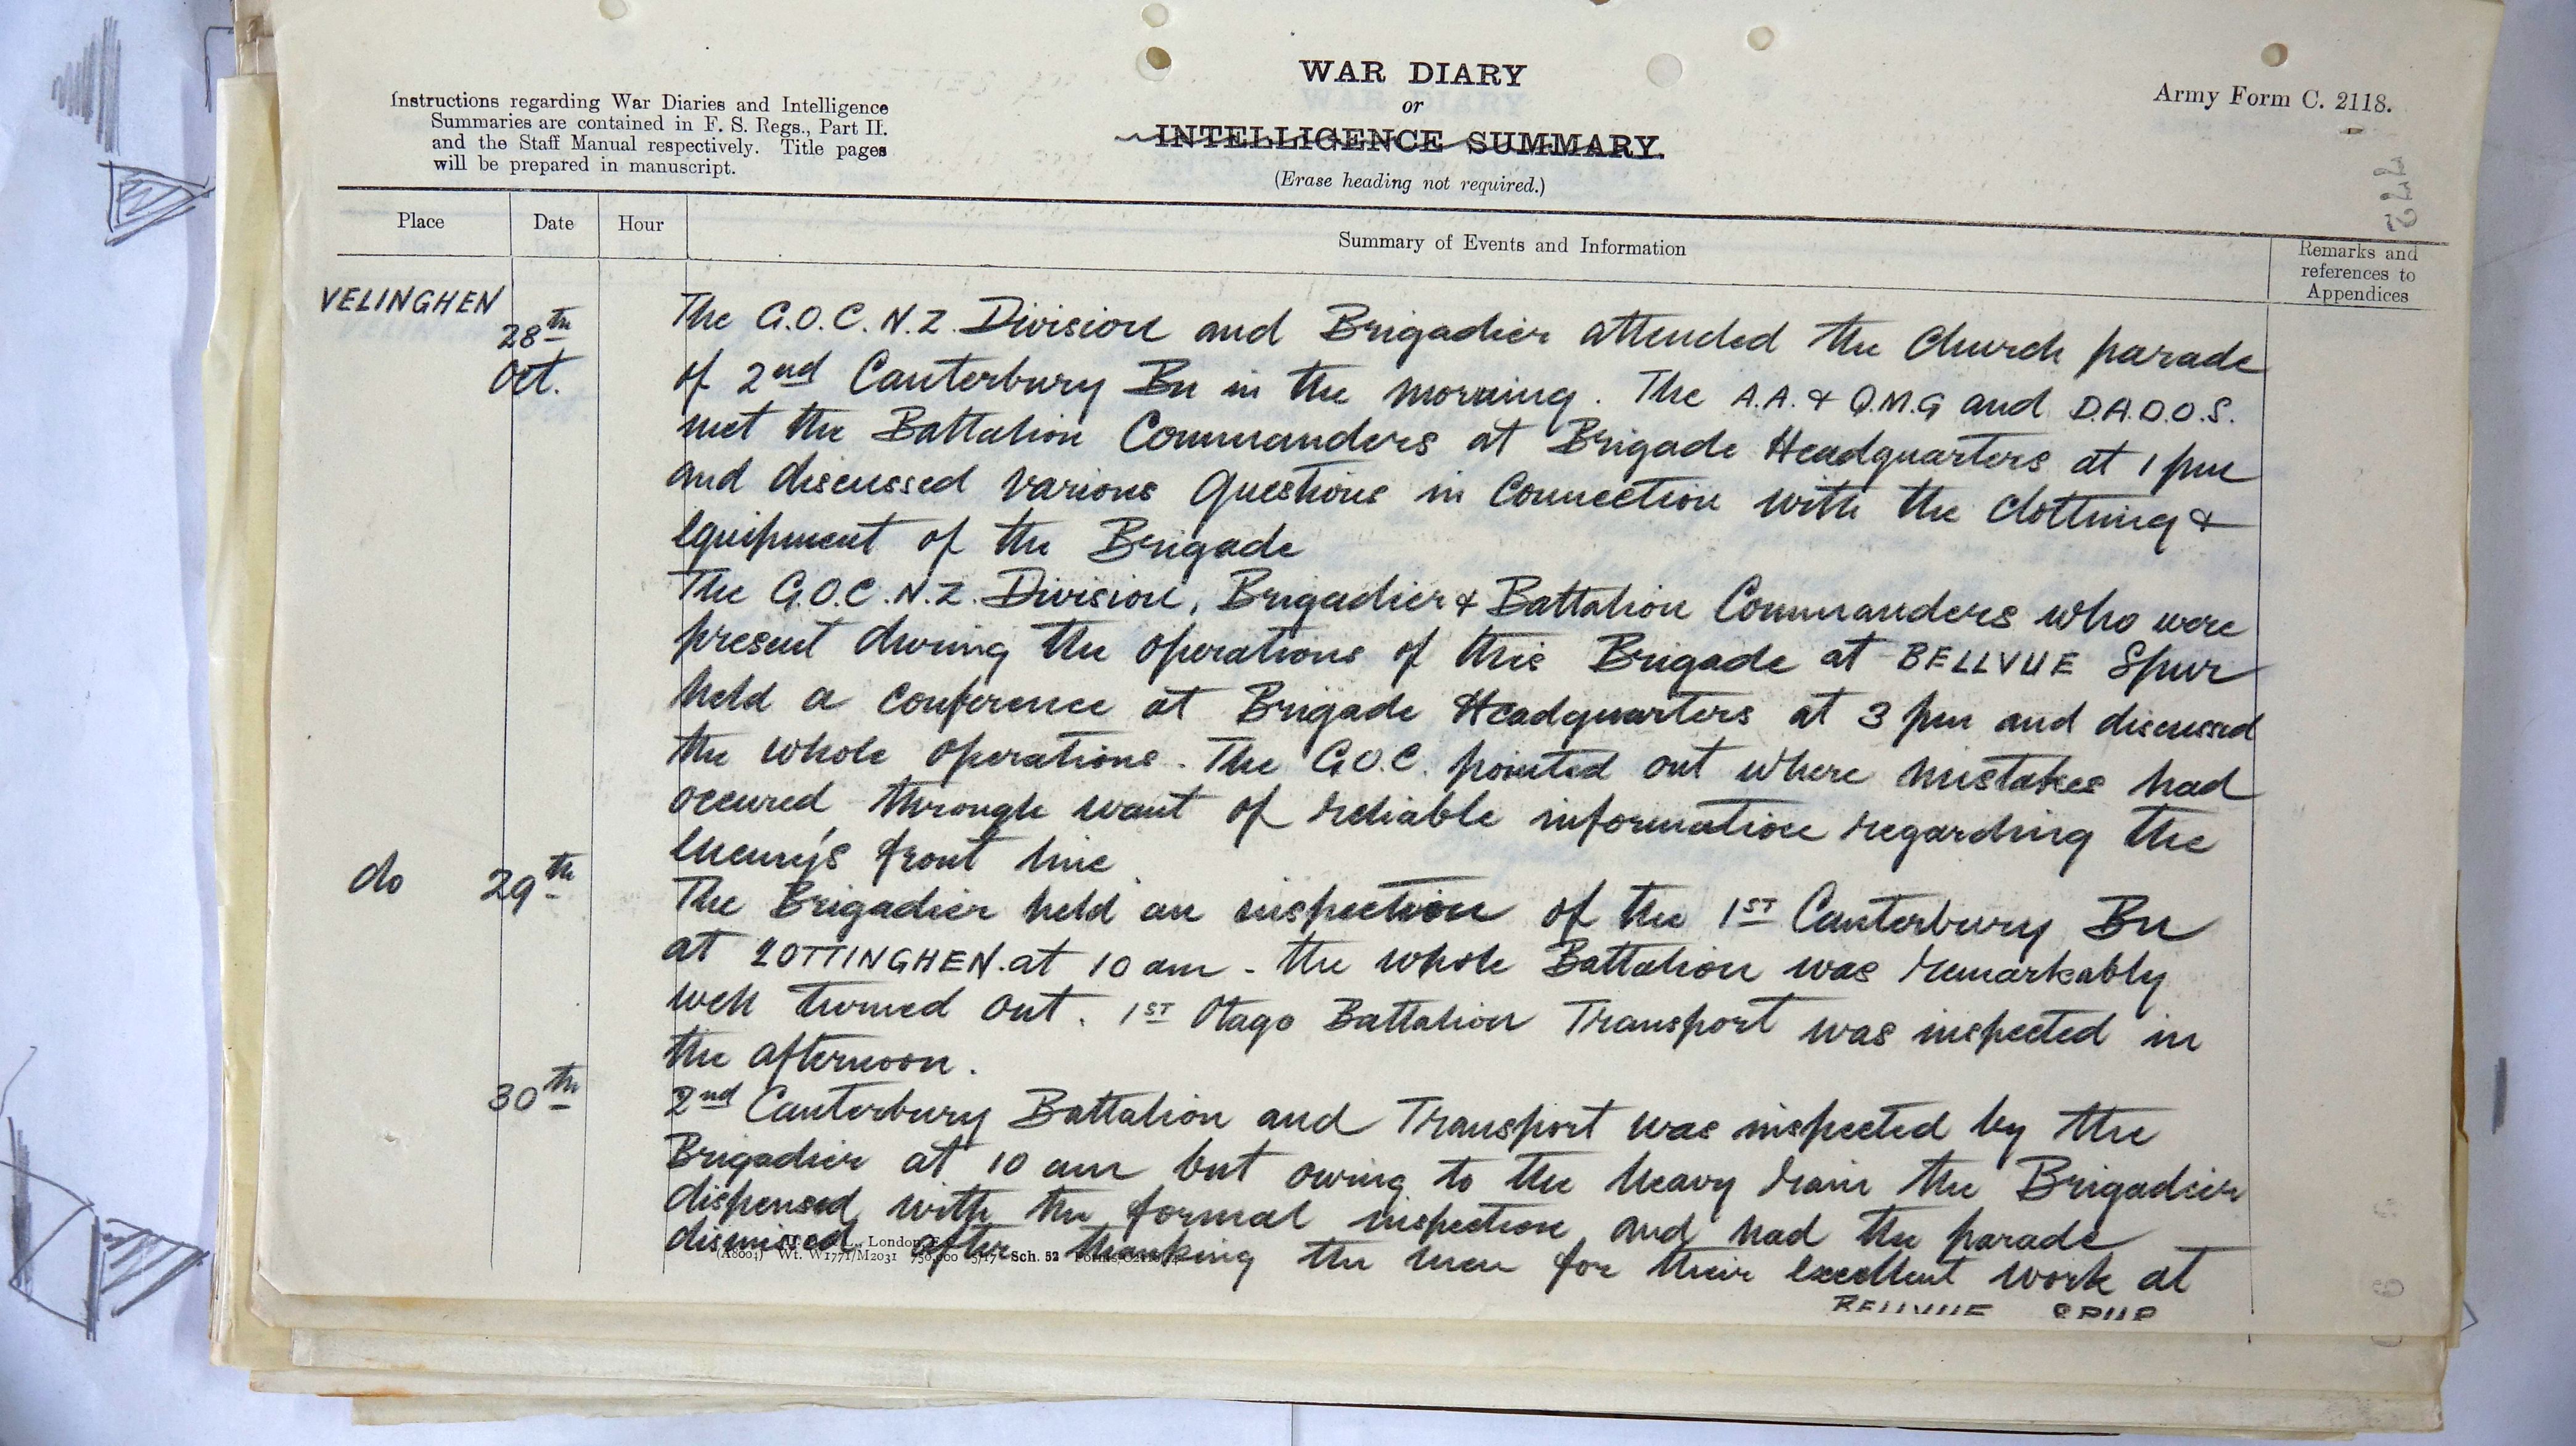 WAR DIARY
or
INTELLIGENCE SUMMARY.
(Erase heading not required.)
Instructions regarding War Diaries and Intelligence
Summaries are contained in F. S. Regs., Part II.
and the Staff Manual respectively. Title pages
will be prepared in manuscript.
Army Form C. 2118.
Place Date Hour Summary of Events and Information Remarks and
references to
Appendices
VELINGHEN
28th
Oct.
The G.O.C. N.Z. Division and Brigadier attended the Church parade
of 2nd Canterbury Bn in the morning. The A.A. & Q.M.G and D.A.D.O.S.
met the Battalion Commanders at Brigade Headquarters at 1 pm
and discussed various questions in connection with the clothing &
equipment of the Brigade
The G.O.C. N.Z. Division, Brigadier & Battalion Commanders who were
present during the operations of this Brigade at BELLVUE Spur
held a conference at Brigade Headquarters at 3 pm and discussed
the whole operations. The G.O.C. pointed out where mistakes had
occured through want of reliable information regarding the
enemy's front line
do 29th The Brigadier held an inspection of the 1ST Canterbury Bn
at LOTTINGHEN. at 10 am - the whole Battalion was remarkably
well turned out. 1ST Otago Battalion Transport was inspected in
the afternoon.
30th 2nd Canterbury Battalion and Transport was inspected by the
Brigadier at 10 am but owing to the heavy rain the Brigadier
dispensed with the formal inspection and had the parade
dismissed after thanking the men for their excellent work at
BELLVUE SPUR
London
(A8001) Wt. W1771/M2031 750,000 5/17 Sch. 52